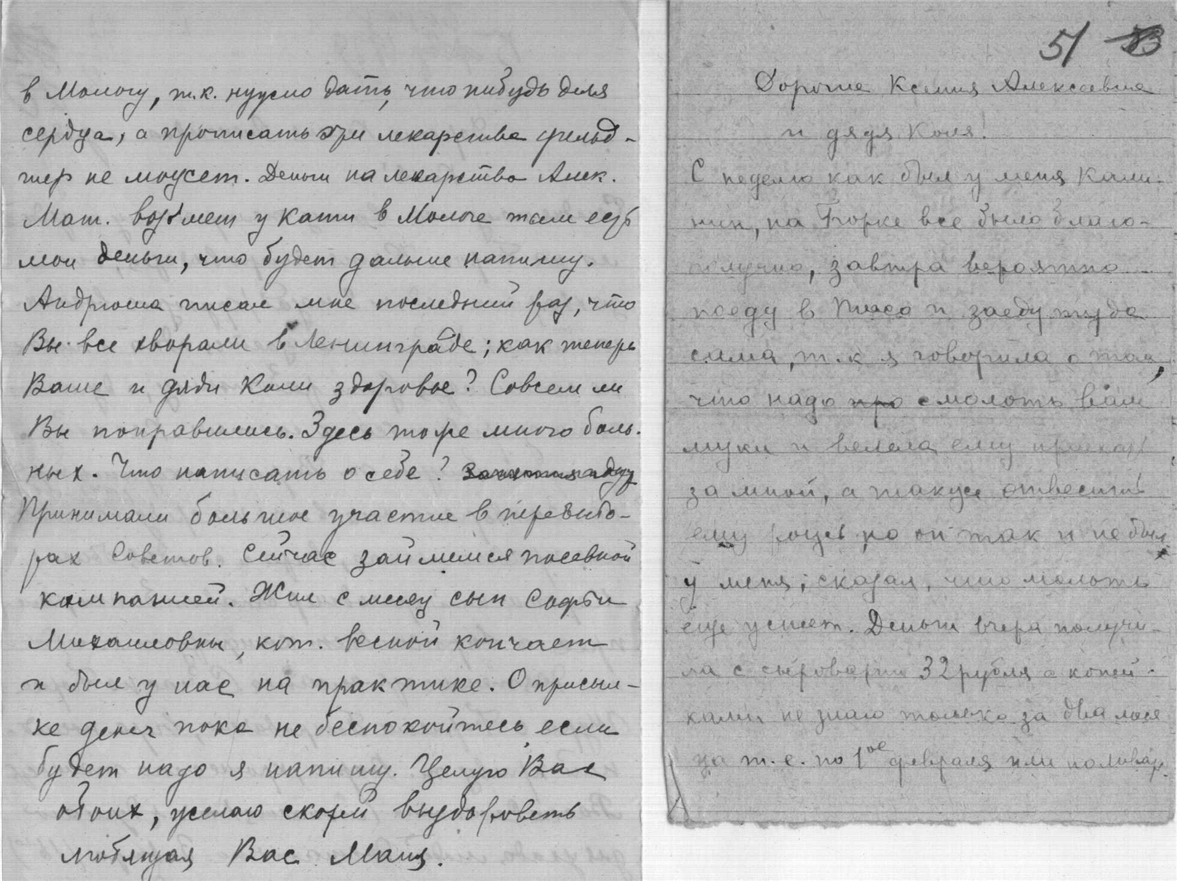 в Мологу, т.к. нужно дать, что нибудь для
сердца, а прописать три лекарства фельд-
шер не может. Деньги на лекарство Алек.
Мат. возьмет у Кати в Мологе там есть
мои деньги, что будет дальше напишу.
Андрюша писал мне последний раз, что
Вы все хворали в Ленинграде; как теперь
Ваше и дяди Коли здоровье? Совсем ли
Вы поправились. Здесь тоже много боль-
ных. Что написать о себе?
Принимали большое участие в перевыбо-
рах Советов. Сейчас займемся посевной
кампанией. Жил с месяц сын Софьи
Михайловны, кот. весной кончает
и был у нас на практике. О присыл-
ке денег пока не беспокойтесь если
будет надо я напишу. Целую Вас
обоих, желаю скорей выздороветь
любящая Вас Маня.
51 53
Дорогие Ксения Алексеевна
и дядя Коля!
С неделю как был у меня Кали-
нин, на Горке все было благо-
получно, завтра вероятно
поеду в и заеду туда
сама, т.к. я говорила о том,
что надо про смолоть вам
муки и велела ему приехать
за мной, а также отвезти
ему рожь но он так и не был
у меня; сказал, что молоть
еще успеет. Деньги вчера получи-
ла с сыроварни 32 рубля с копей-
ками не знаю только за два меся-
ца т.е. по 1ое февраля или